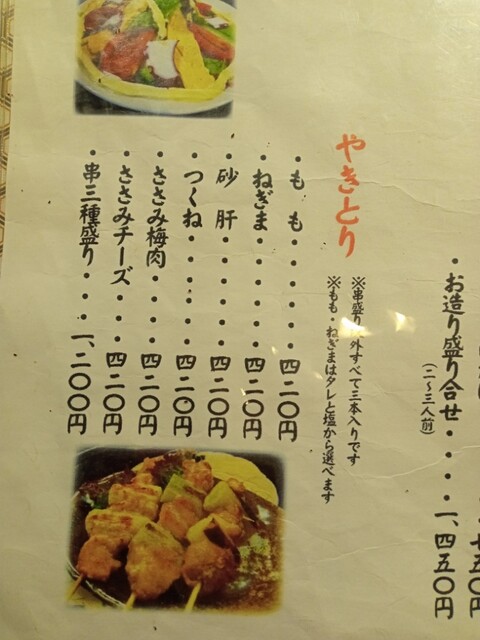 ・お造り盛り合せ・・・・一、四五〇円
(二〜三人前)
やきとり
※串盛り以外すべて三本入りです
※もも・ねぎまはタレと塩から選べます
・もも・・・・・・四二〇円
・ねぎま・・・・・四二〇円
・砂肝・・・・・・四二〇円
・つくね・・・・・四二〇円
・ささみ梅肉・・・四二〇円
・ささみチーズ・・・四二〇円
・串三種盛り・・・一、二〇〇円